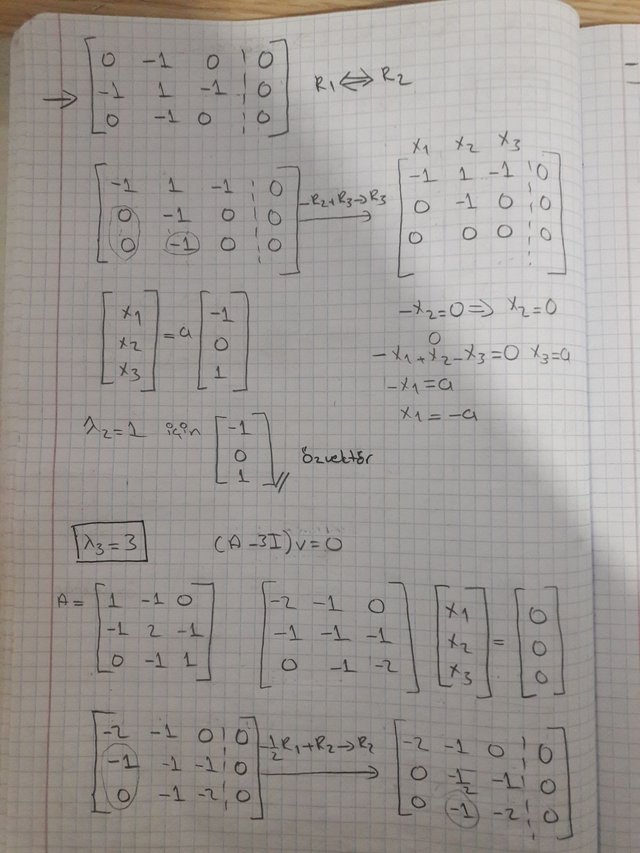 → [0 -1 0 ¦ 0; -1 1 -1 ¦ 0; 0 -1 0 ¦ 0] R1 ⇔ R2
[-1 1 -1 ¦ 0; 0 -1 0 ¦ 0; 0 -1 0 ¦ 0] -R2+R3→R3
x1 x2 x3
[-1 1 -1 ¦ 0; 0 -1 0 ¦ 0; 0 0 0 ¦ 0]
[x1; x2; x3] = a [-1; 0; 1]
-x2=0 ⇒ x2=0
0
-x1+x2-x3=0 x3=a
-x1=a
x1=-a
λ2=1 için [-1; 0; 1] // özvektör
λ3=3 (A-3I)v=0
A= [1 -1 0; -1 2 -1; 0 -1 1] [-2 -1 0; -1 -1 -1; 0 -1 -2] [x1; x2; x3] = [0; 0; 0]
[-2 -1 0 ¦ 0; -1 -1 -1 ¦ 0; 0 -1 -2 ¦ 0] -1/2R1+R2→R2 [-2 -1 0 ¦ 0; 0 -1/2 -1 ¦ 0; 0 -1 -2 ¦ 0]